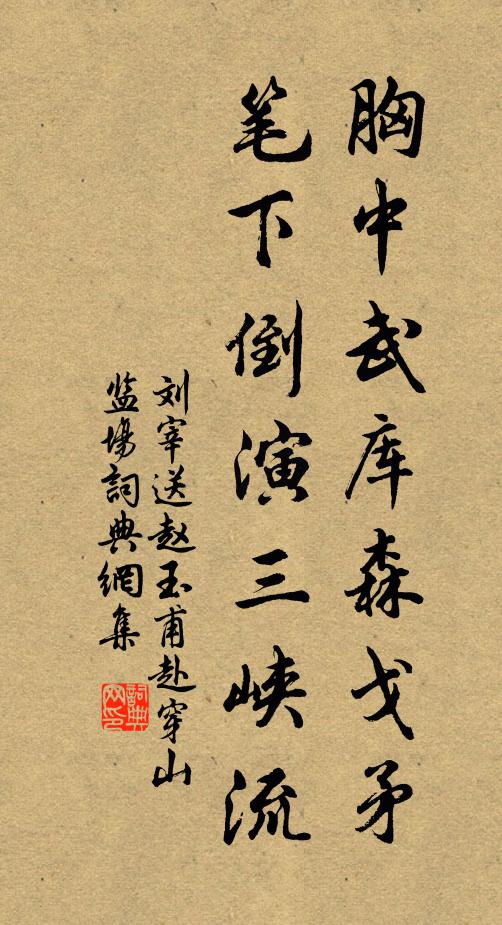 胸中武库森戈矛
笔下倒演三峡流
刘宰送赵玉甫赴穿山
监場詞典網集
詞典网印